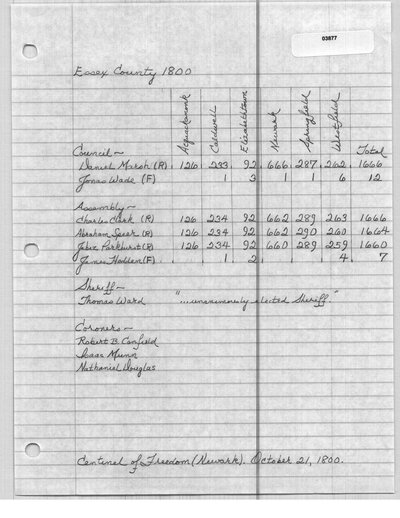 03877
Essex County 1800
Acquackanonk Caldwell Elizabethtown Newark Springfield Westfield
Council ~ Total
Daniel Marsh (R) . 126 . 233 . 92 . 666 . 287 . 262 . 1666
Jonas Wade (F) 1 3 1 1 6 12
Assembly ~
Charles Clark (R) 126 234 92 662 289 263 1666
Abraham Speer (R) 126 234 92 662 290 260 1664
Jabez Parkhurst (R) 126 234 92 660 289 259 1660
James Hedden (F) . 1 2 4 . 7
Sheriff ~
Thomas Ward "... unanimously elected Sheriff."
Coroners ~
Robert B. Canfield
Isaac Munn
Nathaniel Douglas
Centinel of Freedom (Newark). October 21, 1800.